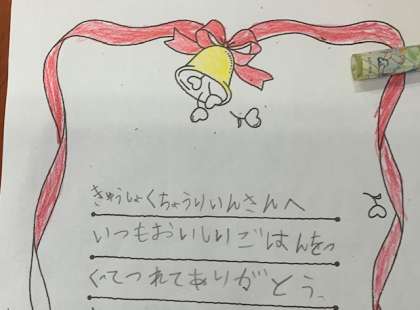 きゅうしょくちょうりいんさんへ
いつもおいしいごはんをつ
くてつれてありがとう、